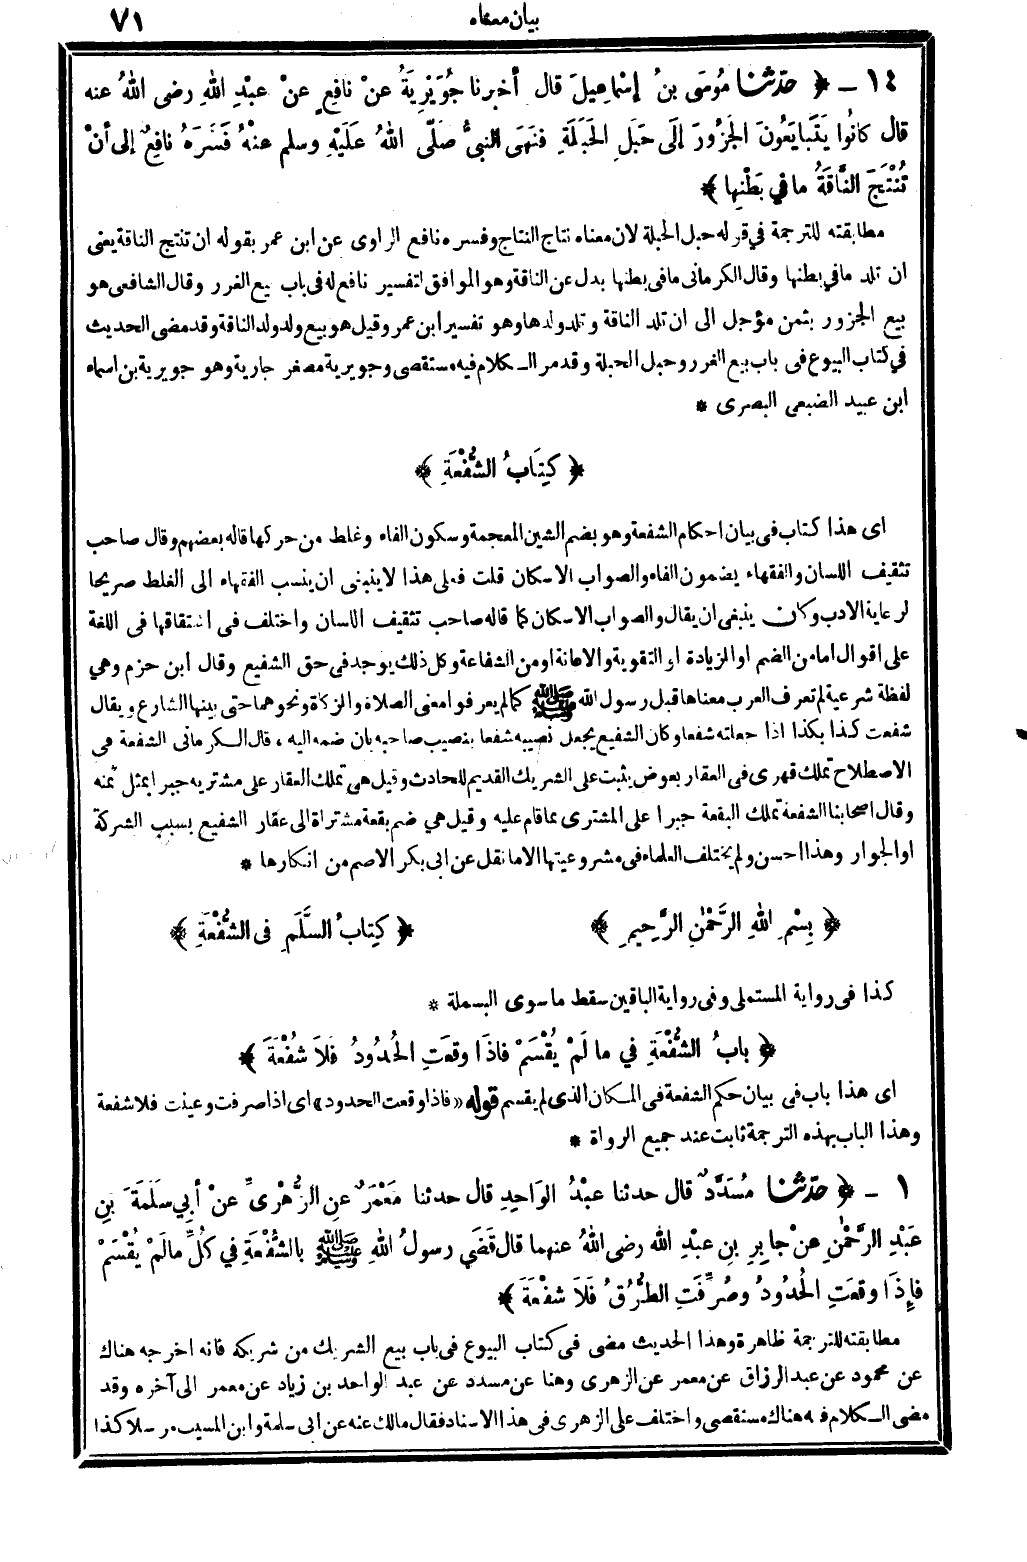 بيان معناه
٧١
١٤ ـ ﴿ حَدَّثَنَا مُوسَى بنُ إسْمَاعِيلَ قال أخبرنا جُوَيْرِيَةُ عنْ نافِعٍ عنْ عبْدِ اللهِ رضى اللهُ عنه
قال كانُوا يَتَبايَعُونَ الجَزُورَ إلَى حَبَلِ الحَبَلَةِ فنَهَى النبيُّ صَلَّى اللهُ عَلَيْهِ وسلم عنْهُ فَسَّرَهُ نافِعٌ إلى أنْ
تُنْتَجَ النَّاقَةُ ما في بَطْنِها ﴾
مطابقته للترجمة في قوله حبل الحبلة لان معناه نتاج النتاج وفسره نافع الراوى عن ابن عمر بقوله ان تنتج الناقة يعنى
ان تلد مافى بطنها وقال الكرمانى مافى بطنها بدل عن الناقة وهو الموافق لتفسير نافع له فى باب بيع الغرر وقال الشافعى هو
بيع الجزور بثمن مؤجل الى ان تلد الناقة وتلد ولدها وهو تفسير ابن عمر وقيل هو بيع ولد ولد الناقة وقد مضى الحديث
في كتاب البيوع فى باب بيع الغرر وحبل الحبلة وقد مر الكلام فيه مستقصى وجويرية مصغر جارية وهو جويرية بن اسماء
ابن عبيد الضبعى البصرى *
﴿ كِتَابُ الشُّفْعَةِ ﴾
اى هذا كتاب فى بيان احكام الشفعة وهو بضم الشين المعجمة وسكون الفاء وغلط من حركها قاله بعضهم وقال صاحب
تثقيف اللسان والفقهاء يضمون الفاء والصواب الاسكان قلت فعلى هذا لا ينبغى ان ينسب الفقهاء الى الغلط صريحا
لرعاية الادب وكان ينبغى ان يقال والصواب الاسكان كما قاله صاحب تثقيف اللسان واختلف فى اشتقاقها فى اللغة
على اقوال اما من الضم او الزيادة او التقوية والاعانة او من الشفاعة وكل ذلك يوجد فى حق الشفيع وقال ابن حزم وهي
لفظة شرعية لم تعرف العرب معناها قبل رسول الله ﷺ كما لم يعرفوا معنى الصلاة والزكاة ونحوهما حتى بينها الشارع ويقال
شفعت كذا بكذا اذا جعلته شفعا وكان الشفيع يجعل نصيبه شفعا بنصيب صاحبه بان ضمه اليه ، قال الكرمانى الشفعة فى
الاصطلاح تملك قهرى فى العقار بعوض يثبت على الشريك القديم للحادث وقيل هى تملك العقار على مشتريه جبرا بمثل ثمنه
وقال اصحابنا الشفعة تملك البقعة جبرا على المشترى بما قام عليه وقيل هي ضم بقعة مشتراة الى عقار الشفيع بسبب الشركة
او الجوار وهذا احسن ولم يختلف العلماء فى مشروعيتها الا ما نقل عن ابى بكر الاصم من انكارها *
﴿ بِسْمِ اللهِ الرَّحْمٰنِ الرَّحِيمِ ﴾ ﴿ كِتَابُ السَّلَمِ فى الشُّفْعَةِ ﴾
كذا فى رواية المستملى وفى رواية الباقين سقط ما سوى البسملة *
﴿ بابُ الشُّفْعَةِ فِي ما لَمْ يُقْسَمْ فاذَا وقَعَتِ الحُدُودُ فلاَ شُفْعَةَ ﴾
اى هذا باب فى بيان حكم الشفعة فى المكان الذى لم يقسم قوله «فاذا وقعت الحدود» اى اذا صرفت وعينت فلا شفعة
وهذا الباب بهذه الترجمة ثابت عند جميع الرواة *
١ ـ ﴿ حَدَّثَنَا مُسَدَّدٌ قال حدثنا عبْدُ الوَاحِدِ قال حدثنا مَعْمَرٌ عنِ الزُّهْرِىِّ عنْ أبِي سَلَمَةَ بنِ
عَبْدِ الرَّحْمٰنِ عنْ جابِرِ بنِ عبْدِ الله رضى اللهُ عنهما قال قَضَى رسولُ اللهِ ﷺ بالشُّفْعَةِ فِي كُلِّ مالَمْ يُقْسَمْ
فإذَا وقَعَتِ الحُدُودُ وصُرِّفَتِ الطُّرُقُ فَلاَ شُفْعَةَ ﴾
مطابقته للترجمة ظاهرة وهذا الحديث مضى فى كتاب البيوع فى باب بيع الشريك من شريكه فانه اخرجه هناك
عن محمود عن عبد الرزاق عن معمر عن الزهرى وهنا عن مسدد عن عبد الواحد بن زياد عن معمر الى آخره وقد
مضى الكلام فيه هناك مستقصى واختلف على الزهرى فى هذا الاسناد فقال مالك عنه عن ابى سلمة وابن المسيب مرسلا كذا